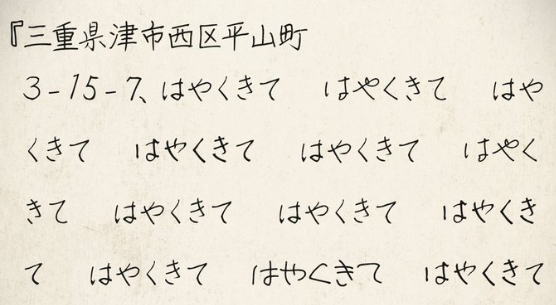 『三重県津市西区平山町
3-15-7、はやくきて　はやくきて　はや
くきて　はやくきて　はやくきて　はやく
きて　はやくきて　はやくきて　はやくき
て　はやくきて　はやくきて　はやくきて